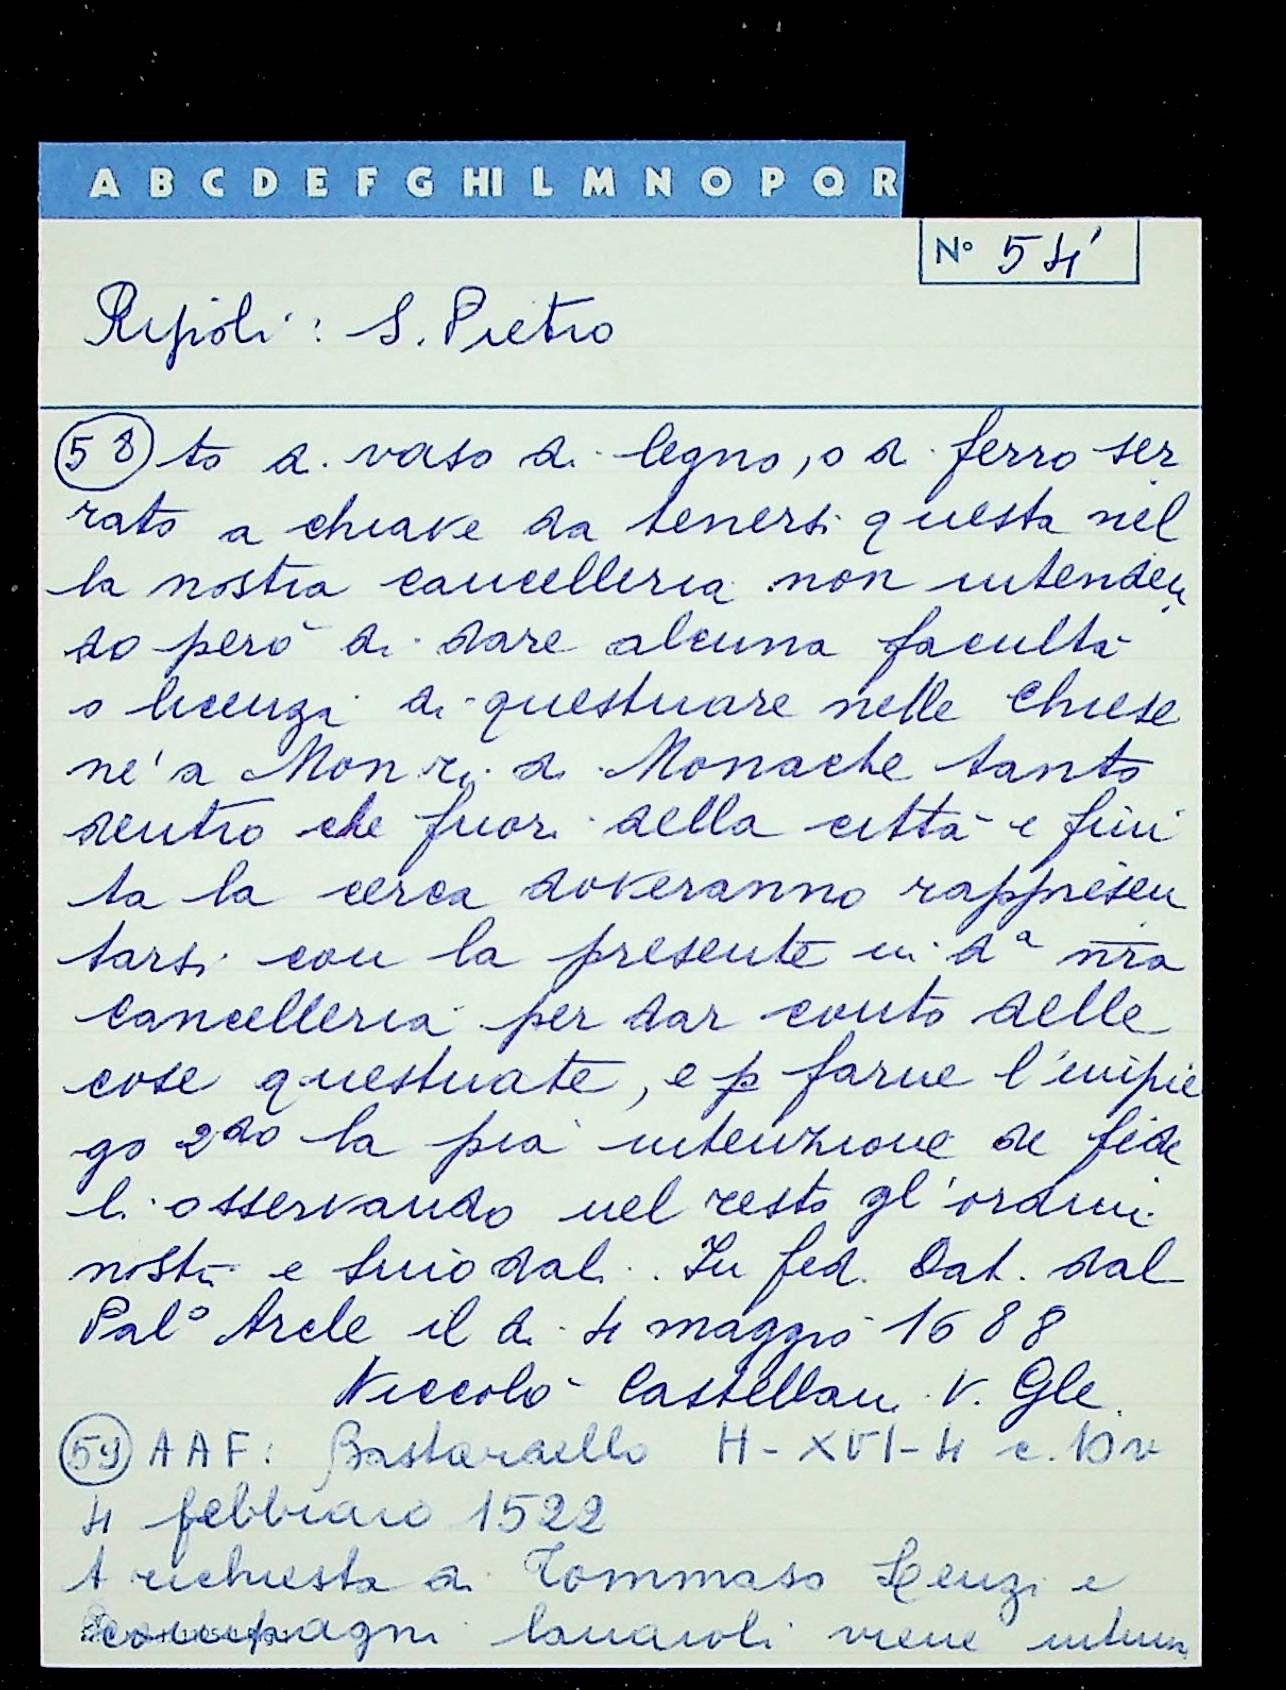 A B C D E F G HI L M N O P Q R
N° 54
Ripoli: S. Pietro
58 to di vaso di legno, o di ferro ser
rato a chiave da tenersi questa nel
la nostra cancelleria non intenden
do però di dare alcuna facultà
o licenza di questuare nelle Chiese
nè a Monri di Monache tanto
dentro che fuori della città e fini
ta la cerca doveranno rappresen
tarsi con la presente in dª nr̄a
Cancelleria per dar conto delle
cose questuate, e p farne l'impie
go 2do la pia intenzione de fide
li osservando nel resto gl'ordini
nostri e sinodali. In fed. Dat. dal
Pal° Arcle il di 4 maggio 1688
Niccolò Castellani V. Gle.
59 AAF: Bastardello H-XVI-4 c. 10v
4 febbraio 1522
A richiesta di Tommaso Lenzi e
compagni lanaioli viene intim